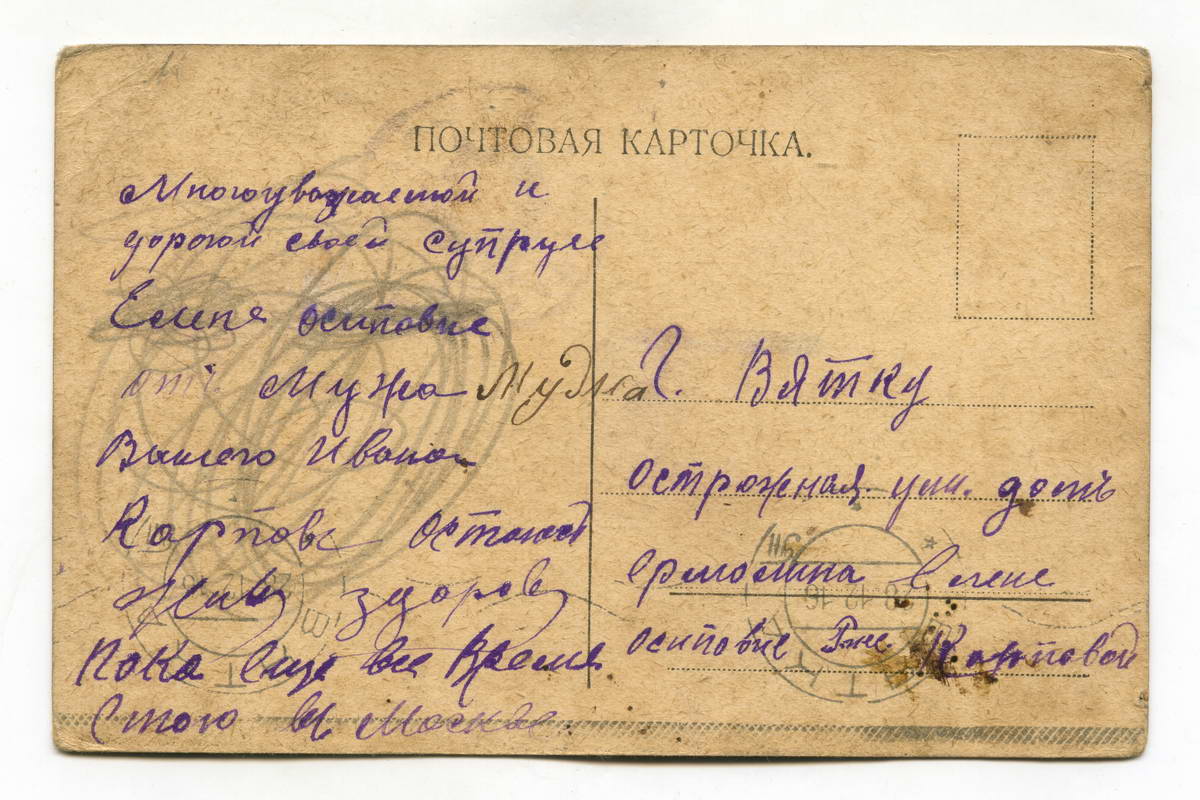 ПОЧТОВАЯ КАРТОЧКА.
Многоуважаемой и
дорогой своей супруге
Елене осиповне
отъ Мужа Мудма
Вашего Ивана
Карпова остаюсь
жив здоров
Пока еще все Время
Стою в Москве.
Г. Вятку
острожная ули. домъ
ермолина Елене
осиповне Гже Карповой
28 12 16
28.12.16